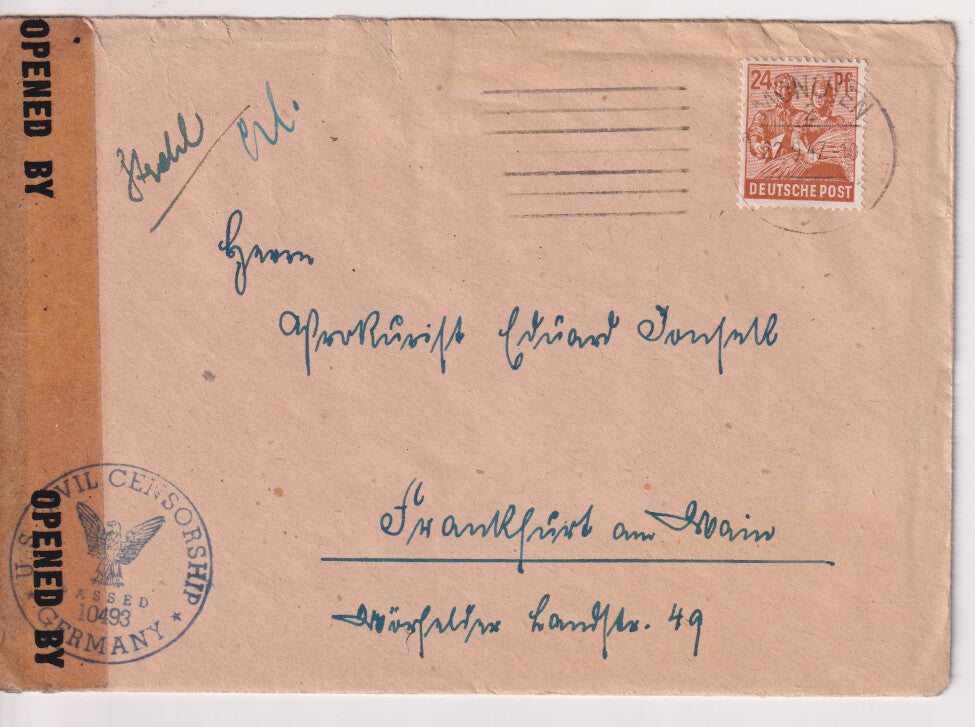 OPENED BY
24 Pf
DEUTSCHE POST
Erl.
Herrn
Prokurist Eduard
Frankfurt am Main
Mörfelder Landstr. 49
U.S. CIVIL CENSORSHIP
PASSED
10493
GERMANY
OPENED BY